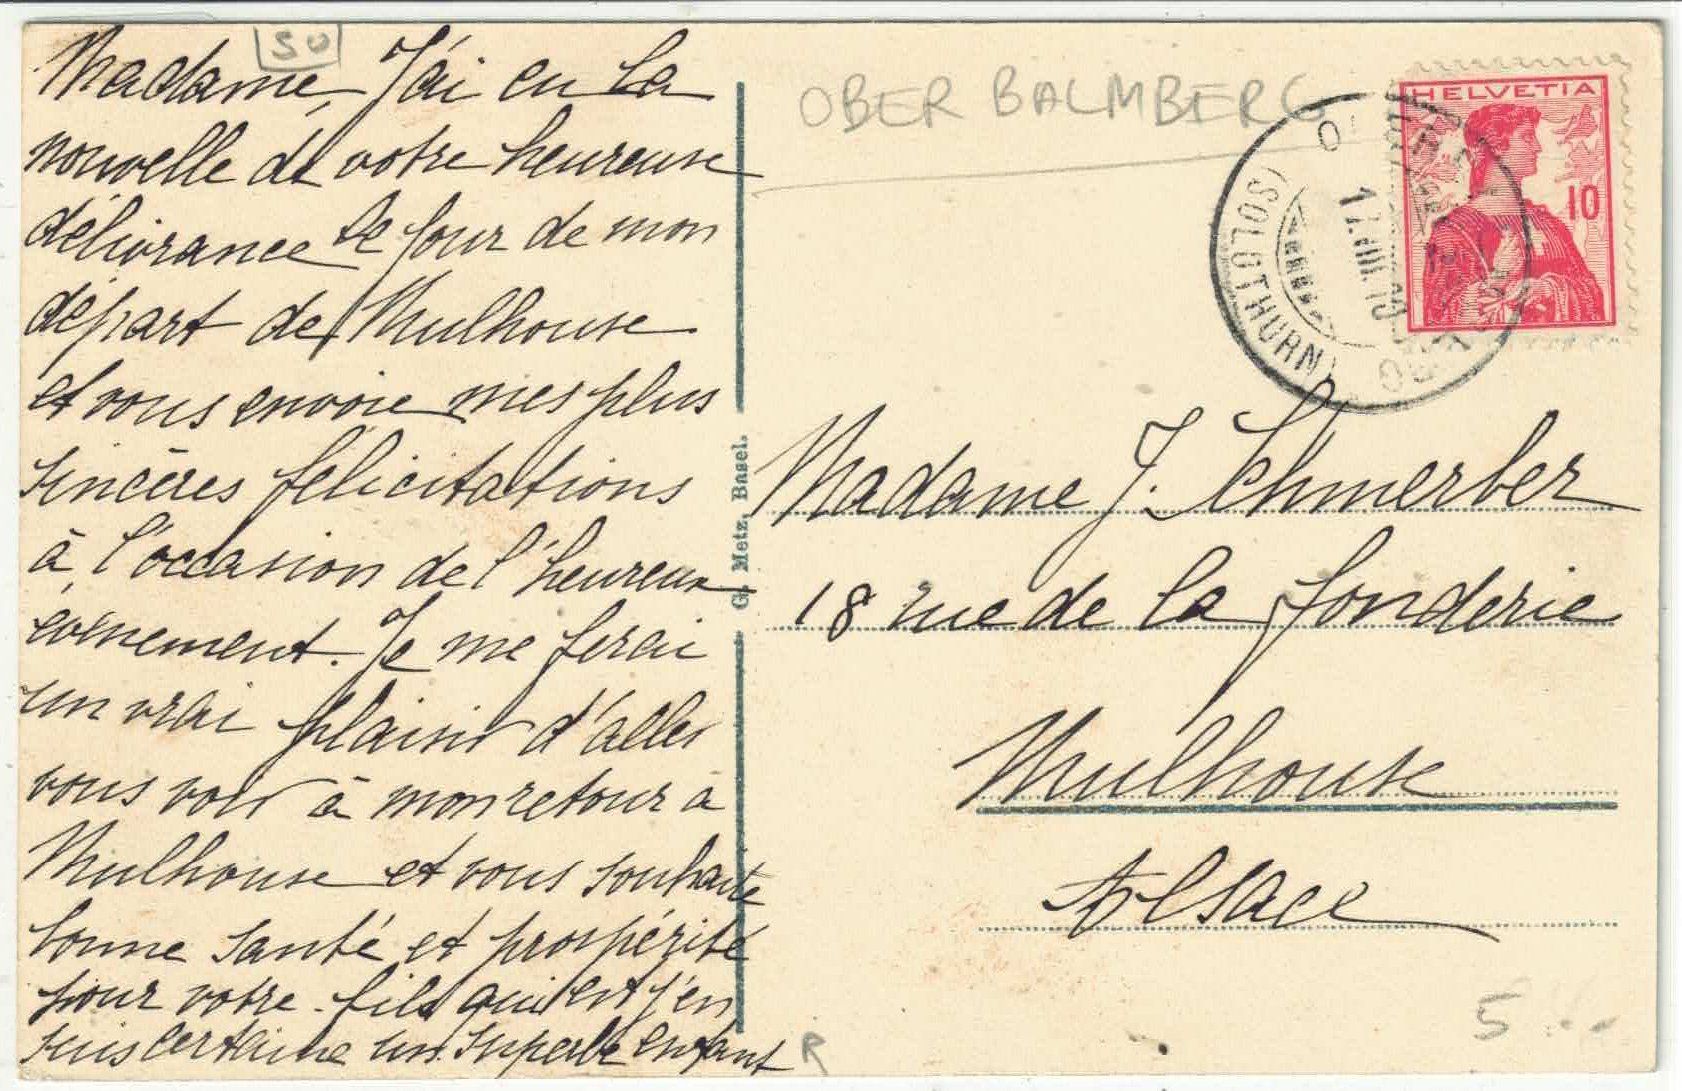 SO
Madame, J'ai eu la
nouvelle de votre heureuse
délivrance le jour de mon
départ de Mulhouse
et vous envoie mes plus
sincères félicitations
à l'occasion de l'heureux
évènement. Je me ferai
un vrai plaisir d'aller
vous voir à mon retour a
Mulhouse et vous souhaite
bonne santé et prospérité
pour votre fils qui est j'en
suis certaine un superbe enfant
G. Metz, Basel.
OBER BALMBERG
HELVETIA
10
(SOLOTHURN)
17.VIII.10
Madame J. Schmerber
18 rue de la fonderie
Mulhouse
Alsace
5
R